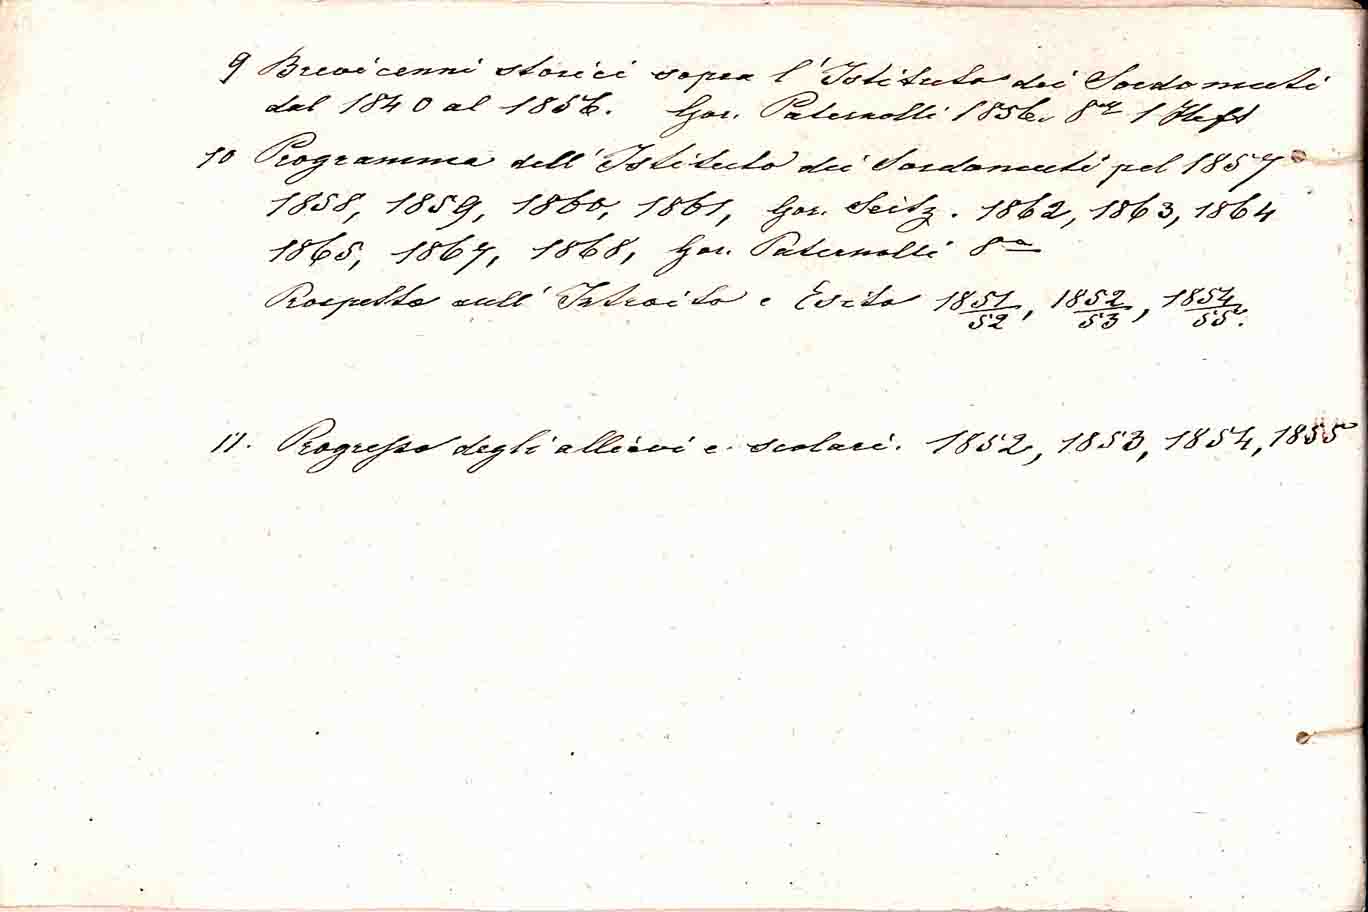 9 Brevi cenni storici sopra l'Istituto dei Sordomuti
dal 1840 al 1856. Gor. Paternolli 1856. 8° 1 Heft
10 Programma dell'Istituto dei Sordomuti pel 1857
1858, 1859, 1860, 1861, Gor. Seitz. 1862, 1863, 1864
1865, 1867, 1868, Gor. Paternolli 8°
Prospetto sull'Introito e Esito 1851/52, 1852/53, 1854/55.
11. Progresso degli allievi e scolari. 1852, 1853, 1854, 1855